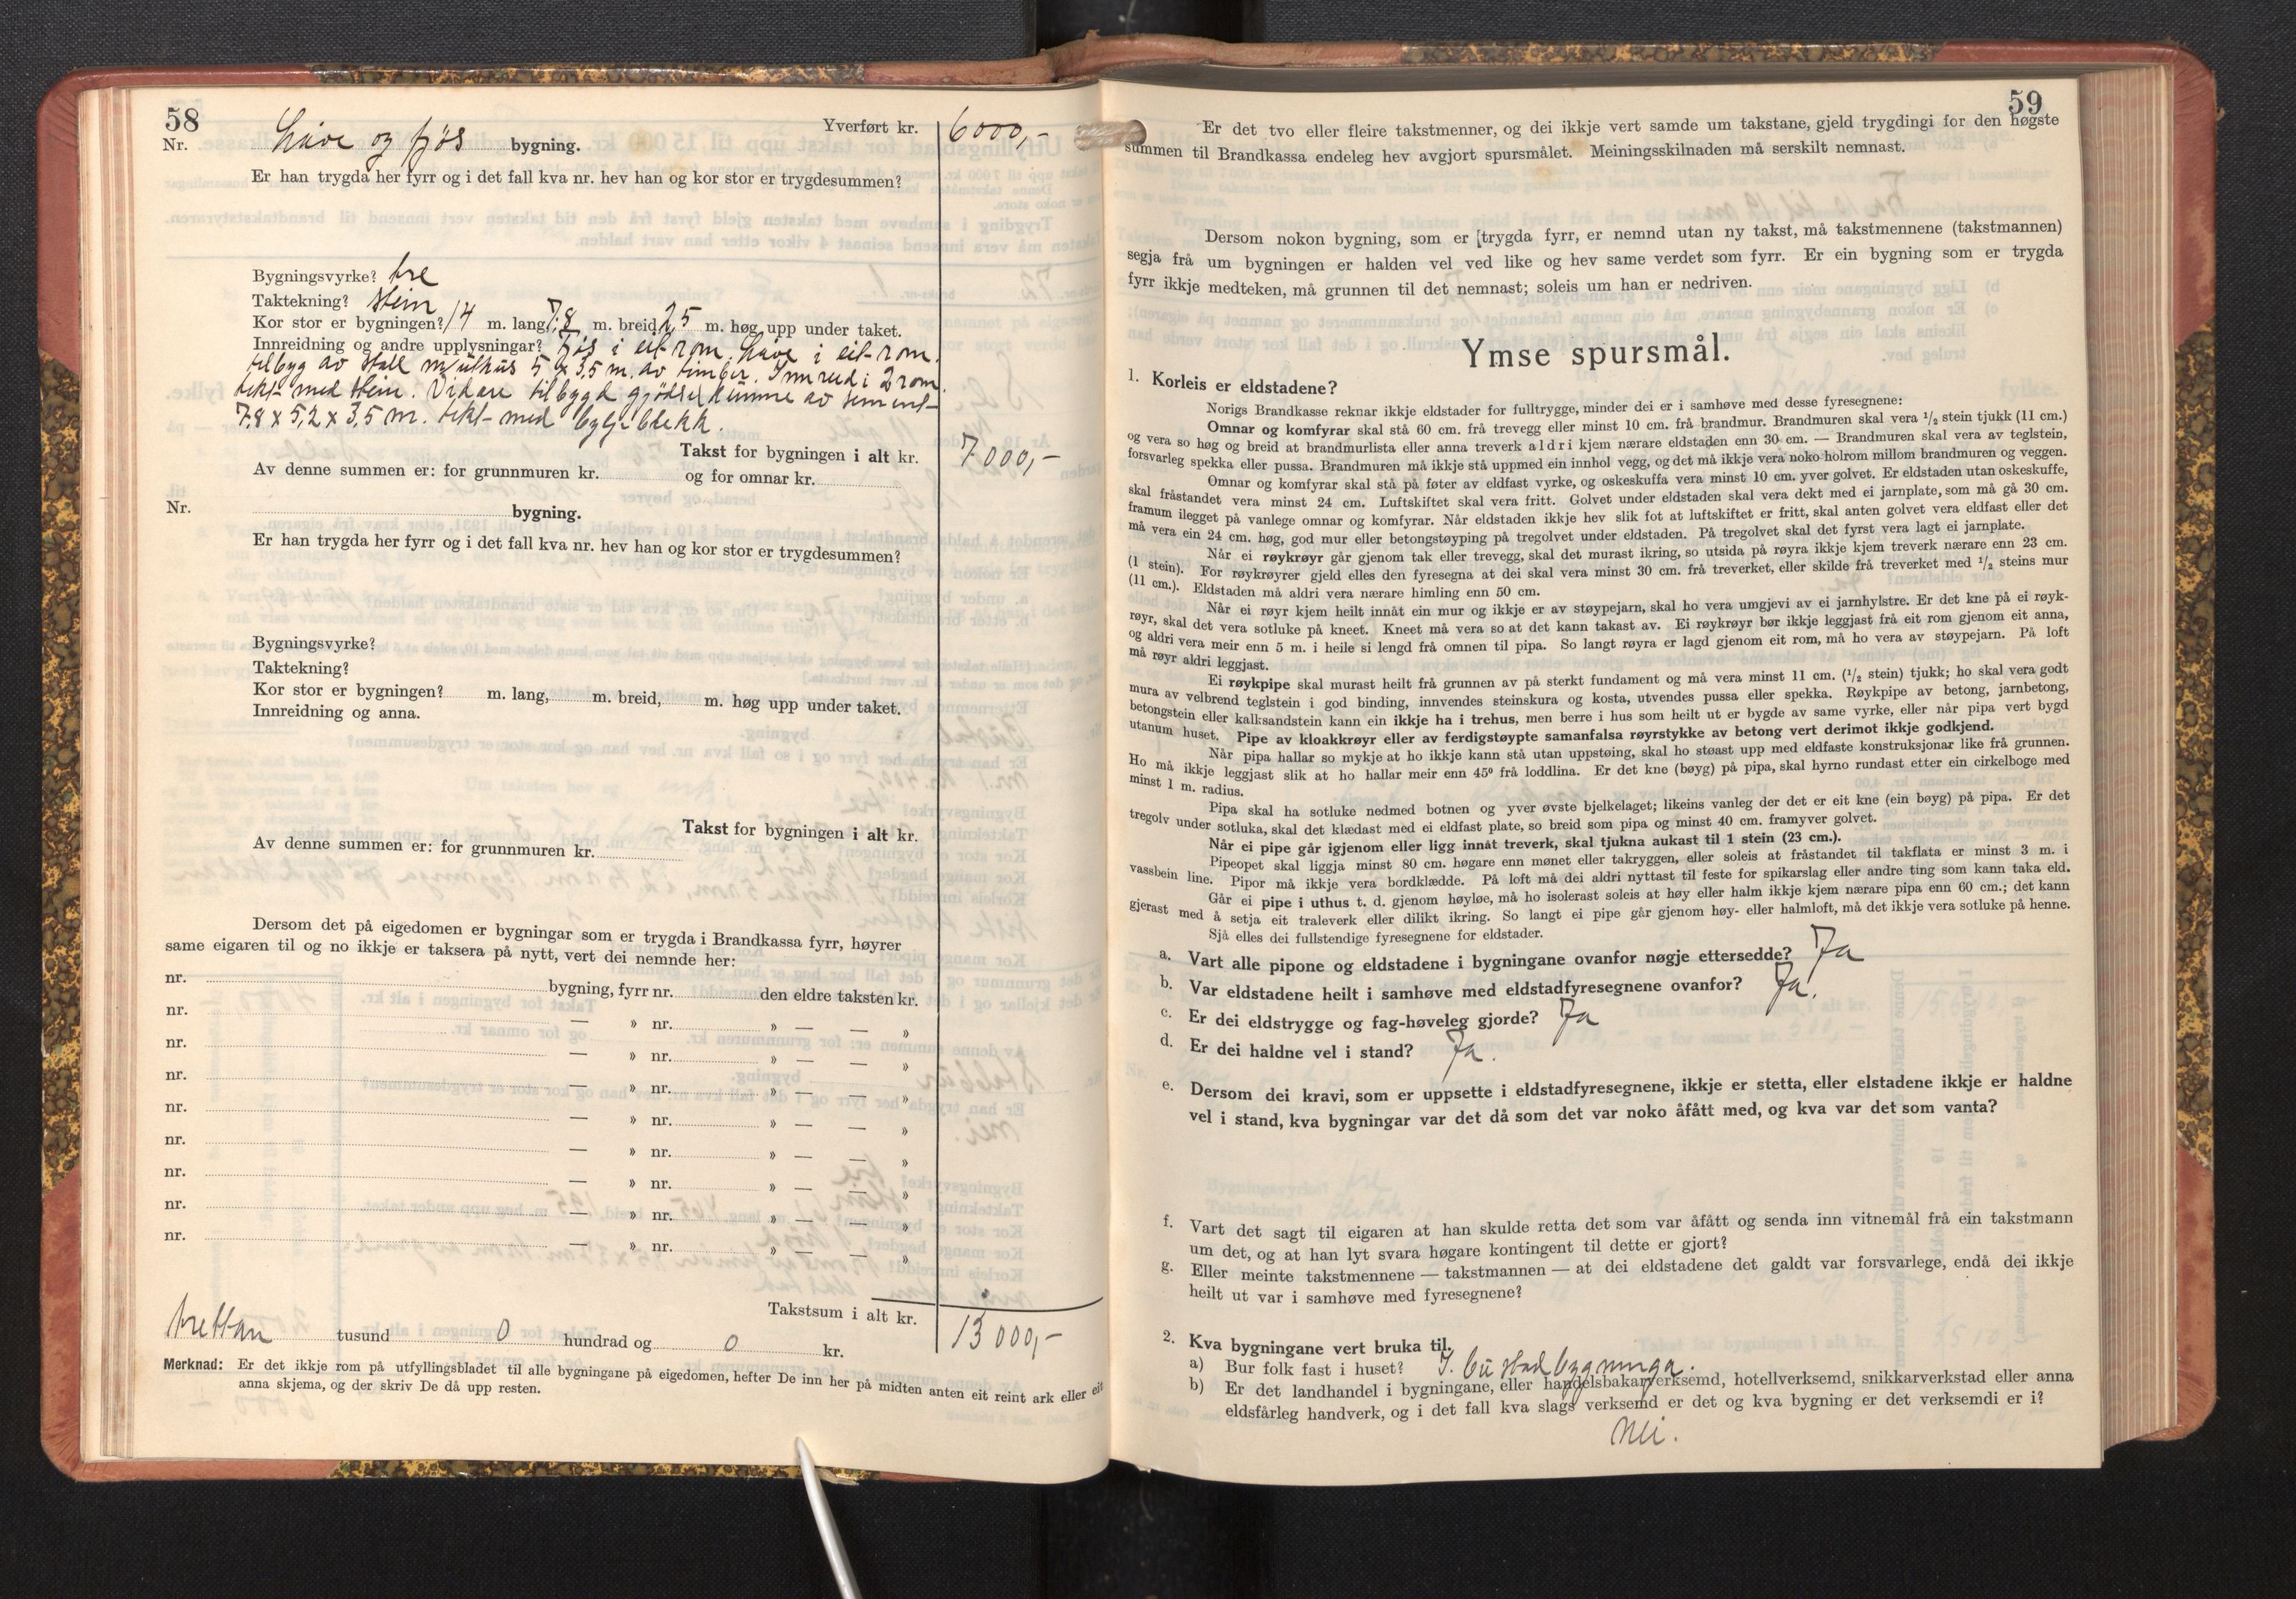 58
Yverført kr. 6000,-
Nr. Løve og fjøs bygning.
Er han trygda her fyrr og i det fall kva nr. hev han og kor stor er trygdesummen?
Bygningsvyrke? tre
Taktekning? stein
Kor stor er bygningen? 14 m. lang, 7,8 m. breid, 2,5 m. høg upp under taket.
Innreidning og andre upplysningar? Fjøs i eit rom. Løve i eit rom.
tilbyg av stall m/uthus 5 x 3,5 m. av timber. Innreid i 2 rom.
tekt med stein. Vidare tilbygd gjødselkumme av sement
7,8 x 5,2 x 3,5 m. tekt med bylgjeblekk.
Takst for bygningen i alt kr. 7000,-
Av denne summen er: for grunnmuren kr. og for omnar kr.
Nr. bygning.
Er han trygda her fyrr og i det fall kva nr. hev han og kor stor er trygdesummen?
Bygningsvyrke?
Taktekning?
Kor stor er bygningen? m. lang, m. breid, m. høg upp under taket.
Innreidning og anna.
Takst for bygningen i alt kr.
Av denne summen er: for grunnmuren kr.
Dersom det på eigedomen er bygningar som er trygda i Brandkassa fyrr, høyrer
same eigaren til og no ikkje er taksera på nytt, vert dei nemnde her:
nr. bygning, fyrr nr. den eldre taksten kr.
nr. — » nr. » — — »
nr. — » nr. » — — »
nr. — » nr. » — — »
nr. — » nr. » — — »
nr. — » nr. » — — »
nr. — » nr. » — — »
nr. — » nr. » — — »
nr. — » nr. » — — »
Takstsum i alt kr. 13000,-
trettan tusund 0 hundrad og 0 kr.
Merknad: Er det ikkje rom på utfyllingsbladet til alle bygningane på eigedomen, hefter De inn her på midten anten eit reint ark eller eit
anna skjema, og der skriv De då upp resten.
59
Er det tvo eller fleire takstmenner, og dei ikkje vert samde um takstane, gjeld trygdingi for den høgste
summen til Brandkassa endeleg hev avgjort spursmålet. Meiningsskilnaden må serskilt nemnast.
Dersom nokon bygning, som er [trygda fyrr, er nemnd utan ny takst, må takstmennene (takstmannen)
segja frå um bygningen er halden vel ved like og hev same verdet som fyrr. Er ein bygning som er trygda
fyrr ikkje medteken, må grunnen til det nemnast; soleis um han er nedriven.
Ymse spursmål.
1. Korleis er eldstadene?
Norigs Brandkasse reknar ikkje eldstader for fulltrygge, minder dei er i samhøve med desse fyresegnene:
Omnar og komfyrar skal stå 60 cm. frå trevegg eller minst 10 cm. frå brandmur. Brandmuren skal vera 1/2 stein tjukk (11 cm.)
og vera so høg og breid at brandmurlista eller anna treverk aldri kjem nærare eldstaden enn 30 cm. — Brandmuren skal vera av teglstein,
forsvarleg spekka eller pussa. Brandmuren må ikkje stå uppmed ein innhol vegg, og det må ikkje vera noko holrom millom brandmuren og veggen.
Omnar og komfyrar skal stå på føter av eldfast vyrke, og oskeskuffa vera minst 10 cm. yver golvet. Er eldstaden utan oskeskuffe,
skal fråstandet vera minst 24 cm. Luftskiftet skal vera fritt. Golvet under eldstaden skal vera dekt med ei jarnplate, som må gå 30 cm.
framum ilegget på vanlege omnar og komfyrar. Når eldstaden ikkje hev slik fot at luftskiftet er fritt, skal anten golvet vera eldfast eller det
må vera ein 24 cm. høg, god mur eller betongstøyping på tregolvet under eldstaden. På tregolvet skal det fyrst vera lagt ei jarnplate.
Når ei røykrøyr går gjenom tak eller trevegg, skal det murast ikring, so utsida på røyra ikkje kjem treverk nærare enn 23 cm.
(1 stein). For røykrøyrer gjeld elles den fyresegna at dei skal vera minst 30 cm. frå treverket, eller skilde frå treverket med 1/2 steins mur
(11 cm.). Eldstaden må aldri vera nærare himling enn 50 cm.
Når ei røyr kjem heilt innåt ein mur og ikkje er av støypejarn, skal ho vera umgjevi av ei jarnhylstre. Er det kne på ei røyk-
røyr, skal det vera sotluke på kneet. Kneet må vera so at det kann takast av. Ei røykrøyr bør ikkje leggjast frå eit rom gjenom eit anna,
og aldri vera meir enn 5 m. i heile si lengd frå omnen til pipa. So langt røyra er lagd gjenom eit rom, må ho vera av støypejarn. På loft
må røyr aldri leggjast.
Ei røykpipe skal murast heilt frå grunnen av på sterkt fundament og må vera minst 11 cm. (1/2 stein) tjukk; ho skal vera godt
mura av velbrend teglstein i god binding, innvendes steinskura og kosta, utvendes pussa eller spekka. Røykpipe av betong, jarnbetong,
betongstein eller kalksandstein kann ein ikkje ha i trehus, men berre i hus som heilt ut er bygde av same vyrke, eller når pipa vert bygd
utanum huset. Pipe av kloakkrøyr eller av ferdigstøypte samanfalsa røyrstykke av betong vert derimot ikkje godkjend.
Når pipa hallar so mykje at ho ikkje kann stå utan uppstøing, skal ho støast upp med eldfaste konstruksjonar like frå grunnen.
Ho må ikkje leggjast slik at ho hallar meir enn 45° frå loddlina. Er det kne (bøyg) på pipa, skal hyrno rundast etter ein cirkelboge med
minst 1 m. radius.
Pipa skal ha sotluke nedmed botnen og yver øvste bjelkelaget; likeins vanleg der det er eit kne (ein bøyg) på pipa. Er det
tregolv under sotluka, skal det klædast med ei eldfast plate, so breid som pipa og minst 40 cm. framyver golvet.
Når ei pipe går igjenom eller ligg innåt treverk, skal tjukna aukast til 1 stein (23 cm.).
Pipeopet skal liggja minst 80 cm. høgare enn mønet eller takryggen, eller soleis at fråstandet til takflata er minst 3 m. i
vassbein line. Pipor må ikkje vera bordklædde. På loft må dei aldri nyttast til feste for spikarslag eller andre ting som kann taka eld.
Går ei pipe i uthus t. d. gjenom høyløe, må ho isolerast soleis at høy eller halm ikkje kjem nærare pipa enn 60 cm.; det kann
gjerast med å setja eit traleverk eller dilikt ikring. So langt ei pipe går gjenom høy- eller halmloft, må det ikkje vera sotluke på henne.
Sjå elles dei fullstendige fyresegnene for eldstader.
a. Vart alle pipone og eldstadene i bygningane ovanfor nøgje ettersedde? Ja
b. Var eldstadene heilt i samhøve med eldstadfyresegnene ovanfor? Ja.
c. Er dei eldstrygge og fag-høveleg gjorde? Ja
d. Er dei haldne vel i stand? Ja.
e. Dersom dei kravi, som er uppsette i eldstadfyresegnene, ikkje er stetta, eller elstadene ikkje er haldne
vel i stand, kva bygningar var det då som det var noko åfått med, og kva var det som vanta?
f. Vart det sagt til eigaren at han skulde retta det som var åfått og senda inn vitnemål frå ein takstmann
um det, og at han lyt svara høgare kontingent til dette er gjort?
g. Eller meinte takstmennene — takstmannen — at dei eldstadene det galdt var forsvarlege, endå dei ikkje
heilt ut var i samhøve med fyresegnene?
2. Kva bygningane vert bruka til.
a) Bur folk fast i huset? I bustadbygninga.
b) Er det landhandel i bygningane, eller handelsbakarverksemd, hotellverksemd, snikkarverkstad eller anna
eldsfårleg handverk, og i det fall kva slags verksemd er det og kva bygning er det verksemdi er i?
Nei.